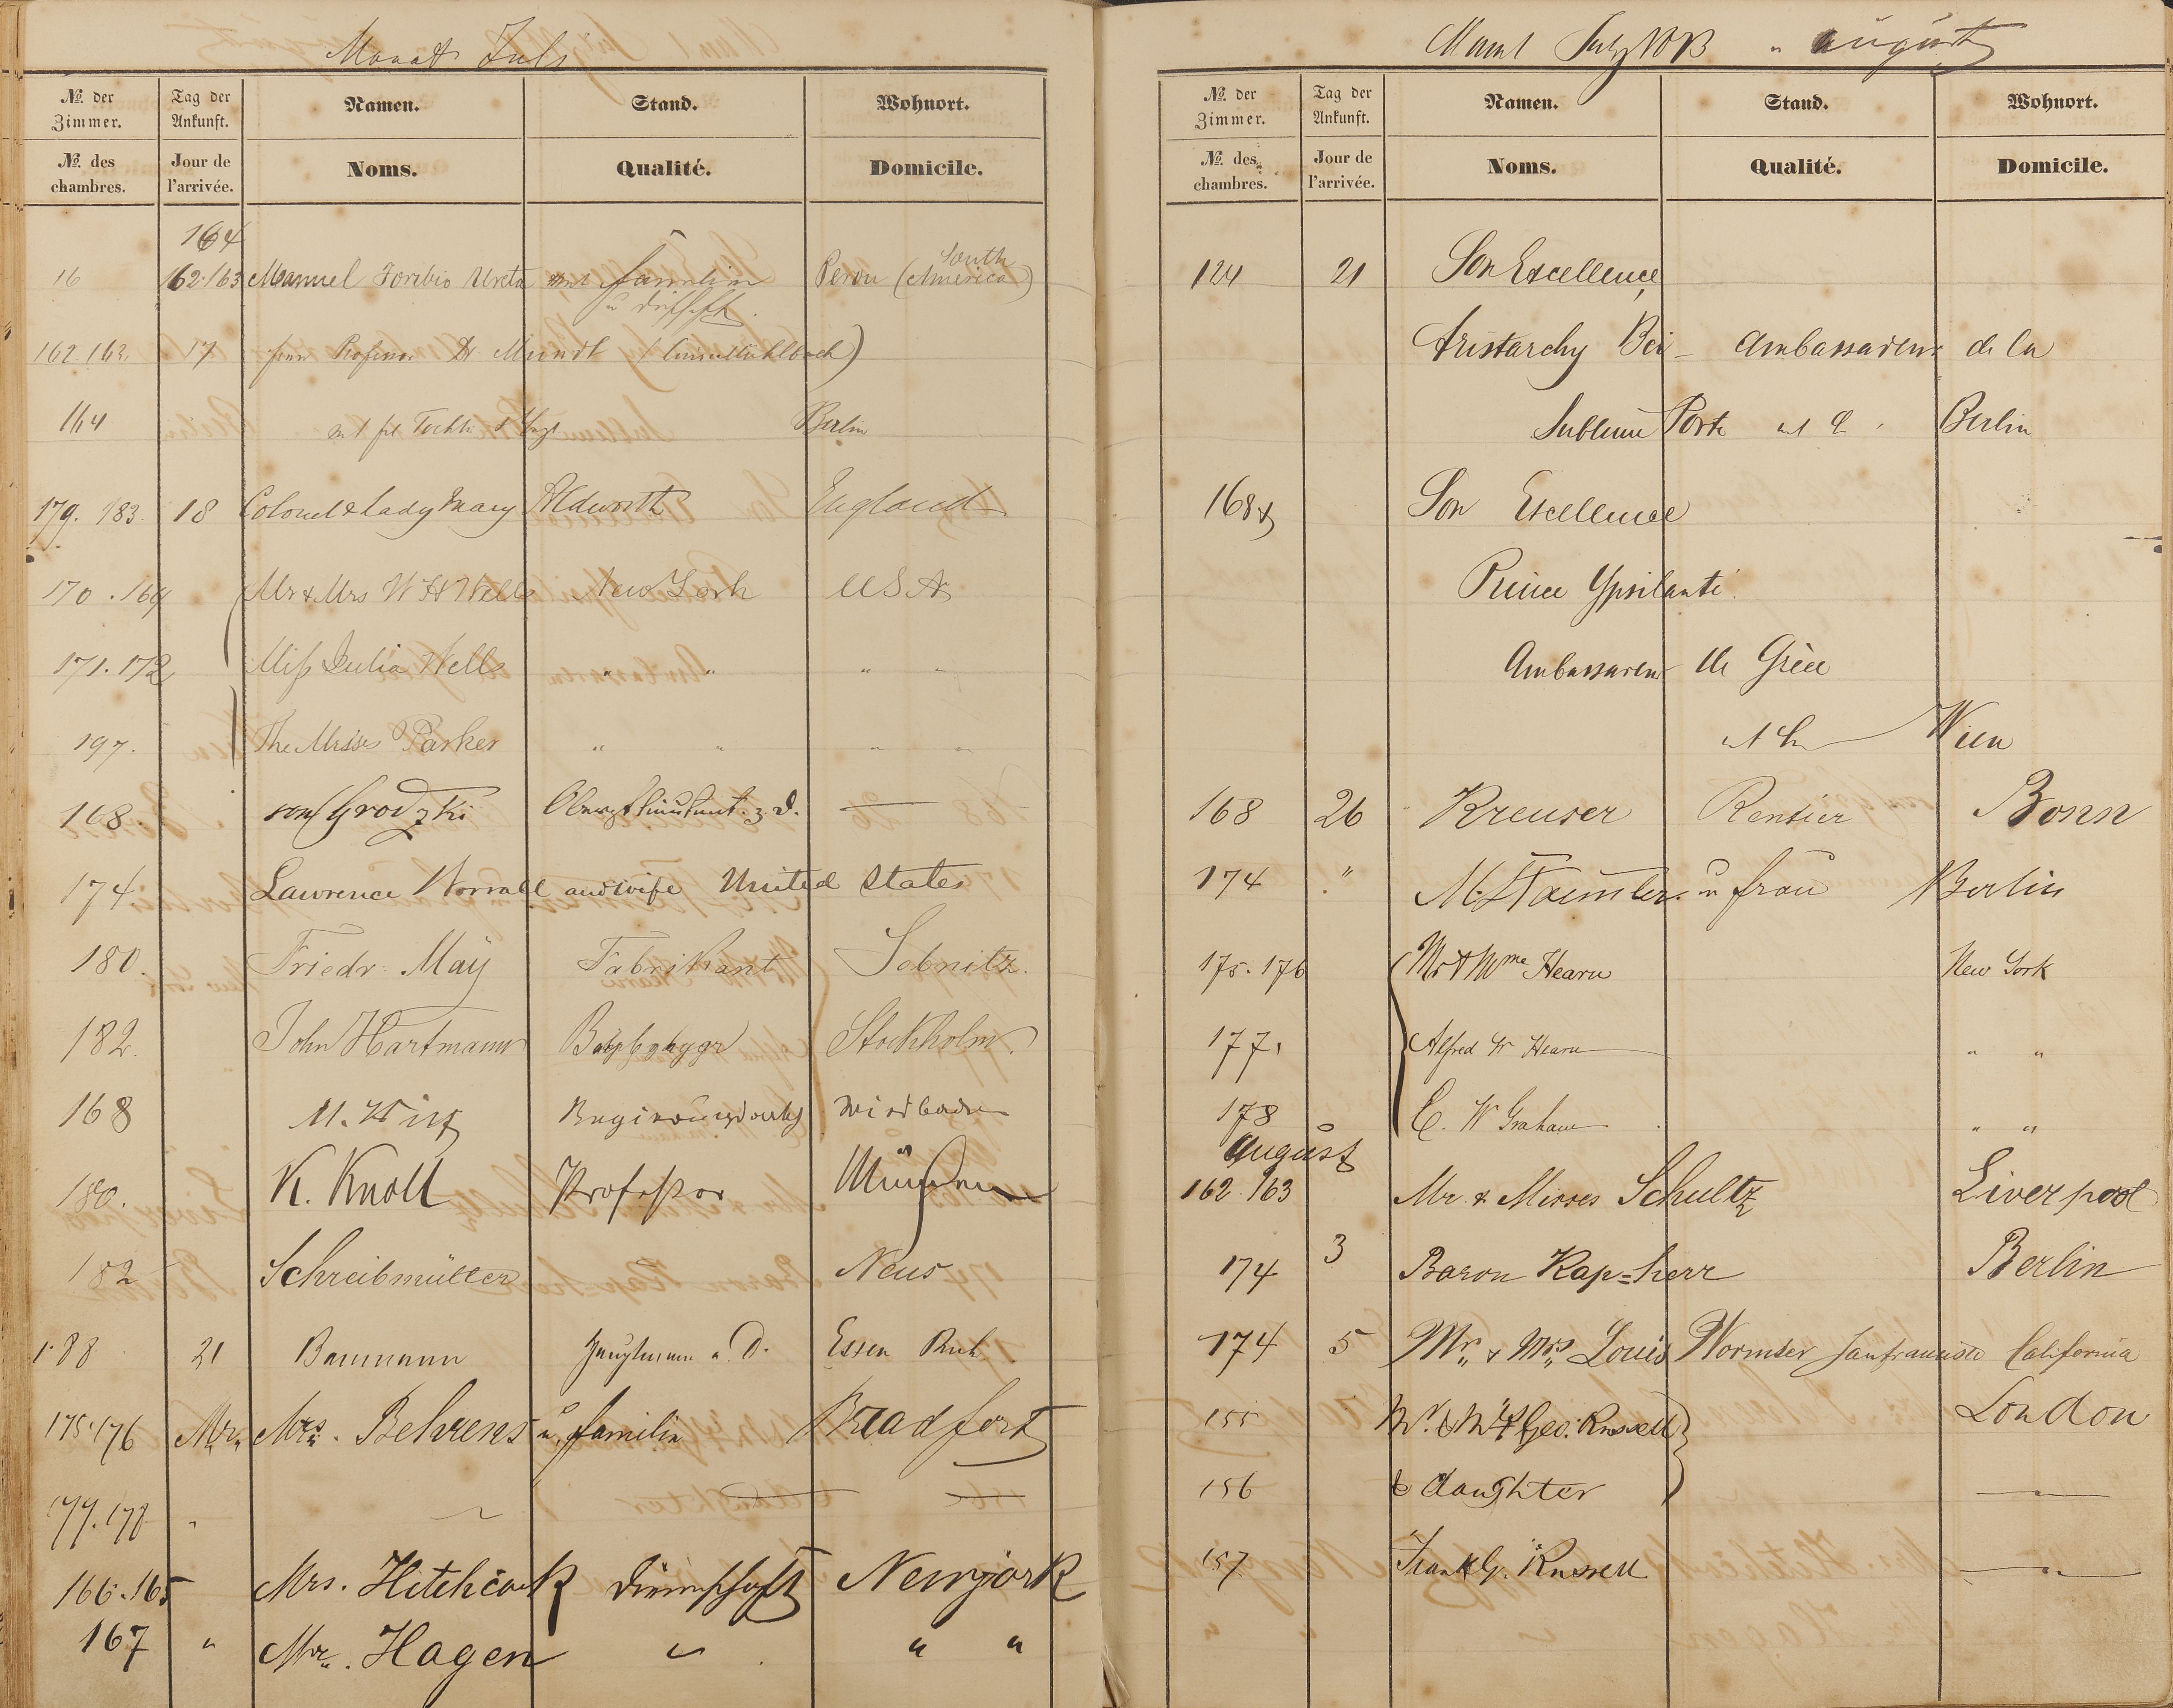 Monat Juli
No. der Zimmer.
Tag der Ankunft.
Namen.
Stand.
Wohnort.
No. des chambres.
Jour de l'arrivée.
Noms.
Qualité.
Domicile.
164
16 162.163 Manuel Toribio Ureta mit Familie Perou (South America)
u
162.163. 17 frau Professor Dr Mundt (Luise Mühlbach)
164 Berlin
179. 183. 18 Colonel & Lady Mary Aldworth England
170.169 Mr & Mrs W H Wells New York U S A
171.172 Miss Julia Wells " " " "
197. The Misses Parker " " " "
168. von Grodzki Oberstlieutenant z. D. —
174. Lawrence Worrall and wife United States
180. Friedr. May Fabrikant Sebnitz.
182. John Hartmann Stockholm.
168 Wiesbaden
180. K. Knoll Professor München
182 Schreibmüller Neus
188 21 Baumann Hauptmann a. D. Essen Ruh
175.176 Mr. Mrs. Behrens u. familie Bradfort
177.178
166.165 Mrs. Hitchcock Dienerschaft Newjork
167 " Mr. Hagen " " "
August
No. der Zimmer.
Tag der Ankunft.
Namen.
Stand.
Wohnort.
No. des chambres.
Jour de l'arrivée.
Noms.
Qualité.
Domicile.
124 21 Son Excellence
Aristarchy Bei - Ambassadeur de la
Sublime Porte Berlin
168 Son Excellence
Prince Ypsilanti
Ambassadeur de Grèce
Wien
168 26 Kreuser Rentier Bonn
174 " u frau Berlin
175.176 Mr & Mme Hearn New York
177. Alfred W Hearn " "
178 C. W Graham " "
August
162.163 Mr. & Misses Schultz Liverpool
174 3 Baron Kap=herr Berlin
174 5 Mr. & Mrs. Louis Wormser Sanfrancisco California
155 Mr. & Mrs Geo. Russell London
156 & daughter —
157 Frank G. Russell —